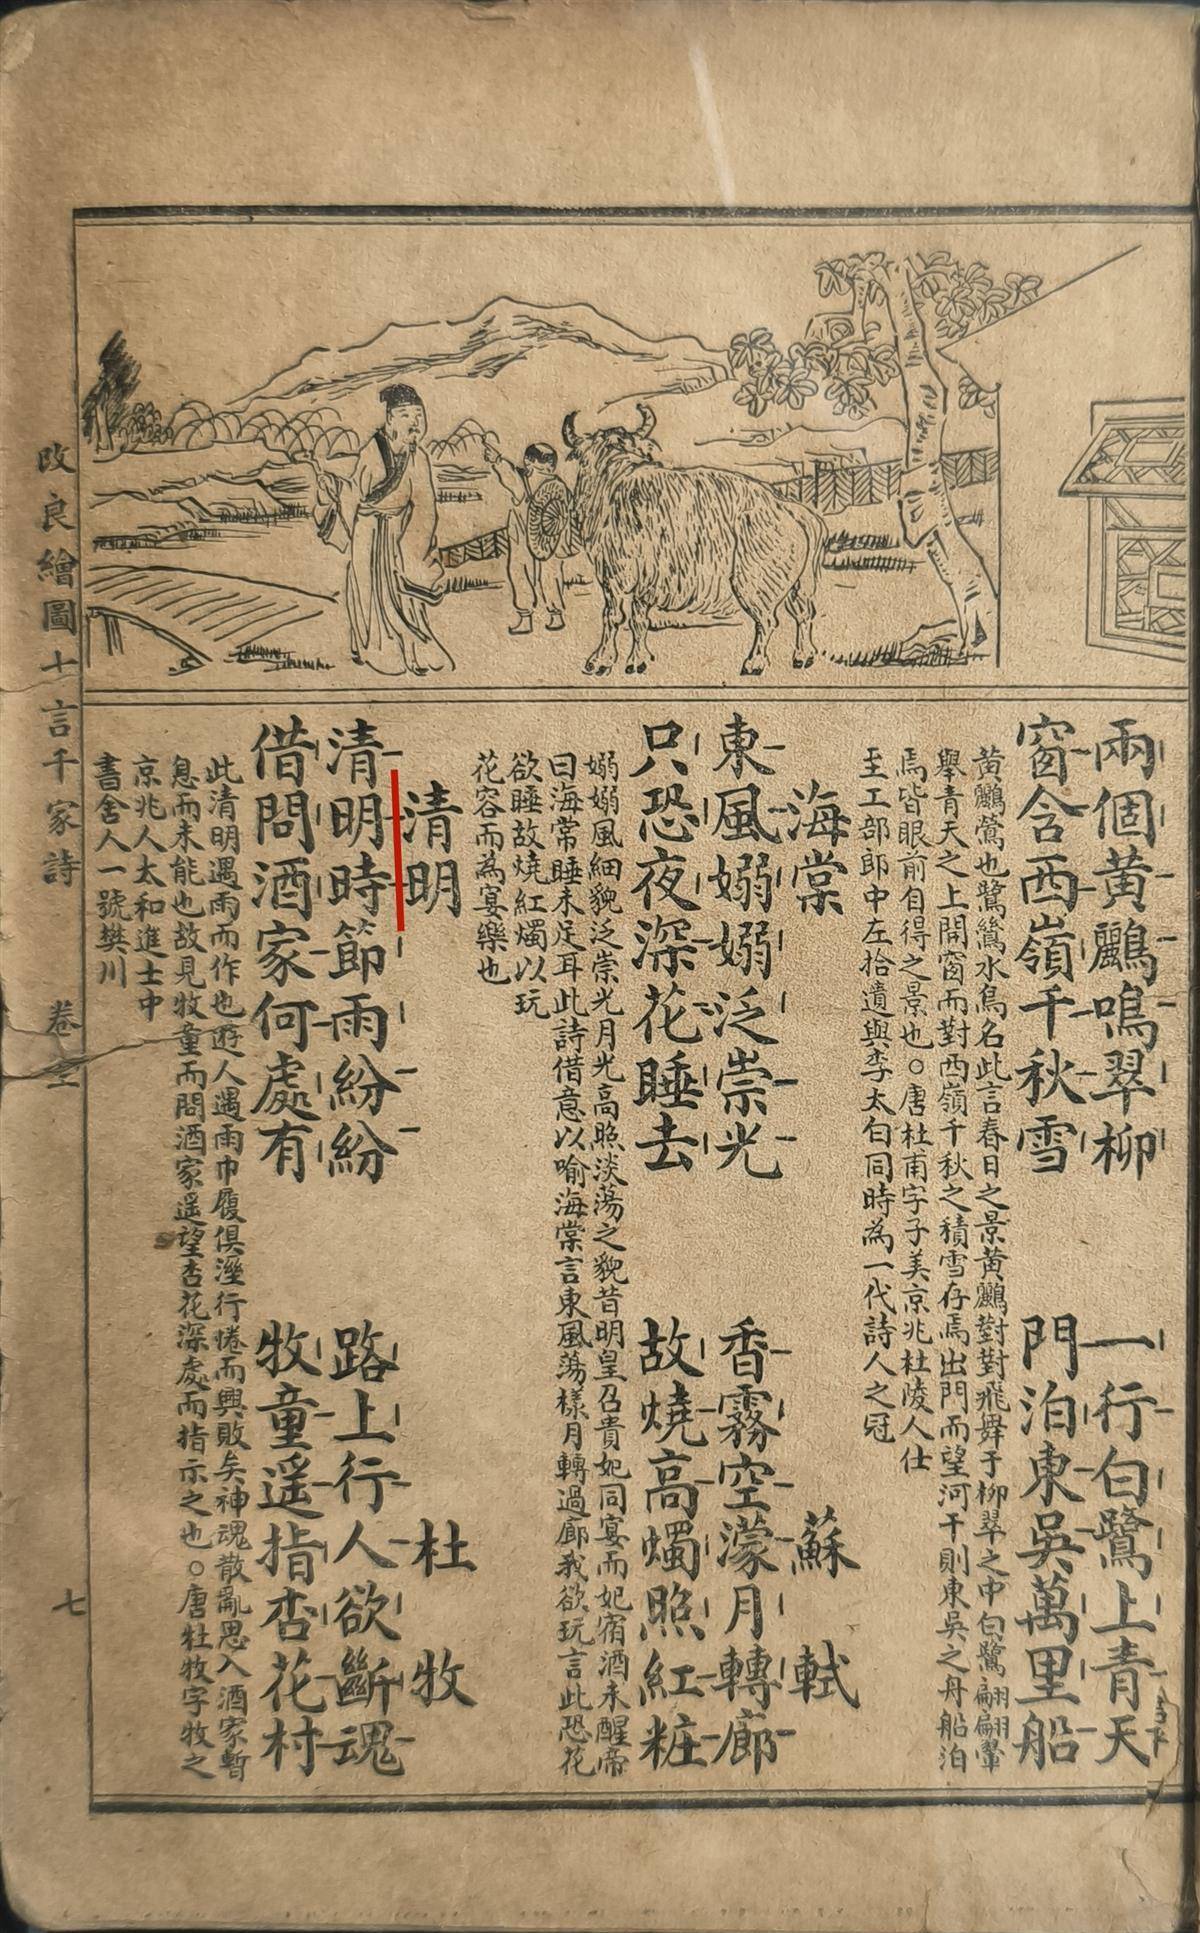 兩個黃鸝鳴翠柳
一行白鷺上青天
窗含西嶺千秋雪
門泊東吳萬里船
黃鸝鶯也鷺鷥水鳥名此言春日之景黃鸝對對飛舞于柳翠之中白鷺翩翩翬
舉青天之上開窗而對西嶺千秋之積雪存焉出門而望河干則東吳之舟船泊
焉皆眼前自得之景也○唐杜甫字子美京兆杜陵人仕
至工部郎中左拾遺與李太白同時為一代詩人之冠
海棠
蘇軾
東風嫋嫋泛崇光
香霧空濛月轉廊
只恐夜深花睡去
故燒高燭照紅粧
嫋嫋風細貌泛崇光月光高照淡蕩之貌昔明皇召貴妃同宴而妃宿酒未醒帝
曰海棠睡未足耳此詩借意以喻海棠言東風蕩樣月轉過廊我欲玩言此恐花
欲睡故燒紅燭以玩
花容而為宴樂也
清明
杜牧
清明時節雨紛紛
路上行人欲斷魂
借問酒家何處有
牧童遥指杏花村
此清明遇雨而作也遊人遇雨巾履俱溼行倦而興敗矣神魂散亂思入酒家暫
息而未能也故見牧童而問酒家遥望杏花深處而指示之也○唐杜牧字牧之
京兆人太和進士中
書舍人一號樊川
改良繪圖七言千家詩
卷上
七